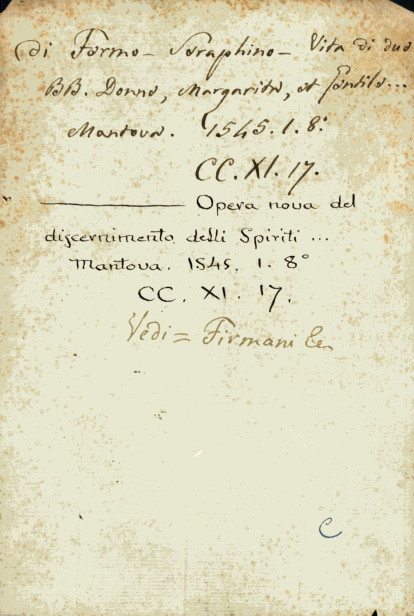 di Fermo - Seraphino - Vita di due
BB. Donne, Margarita, et Gentile...
Mantova. 1545. 1. 8.°
CC. XI. 17.
——— Opera nova del
discernimento delli Spiriti ...
Mantova. 1545. 1. 8°
CC. XI. 17.
Vedi = Firmani &c
C